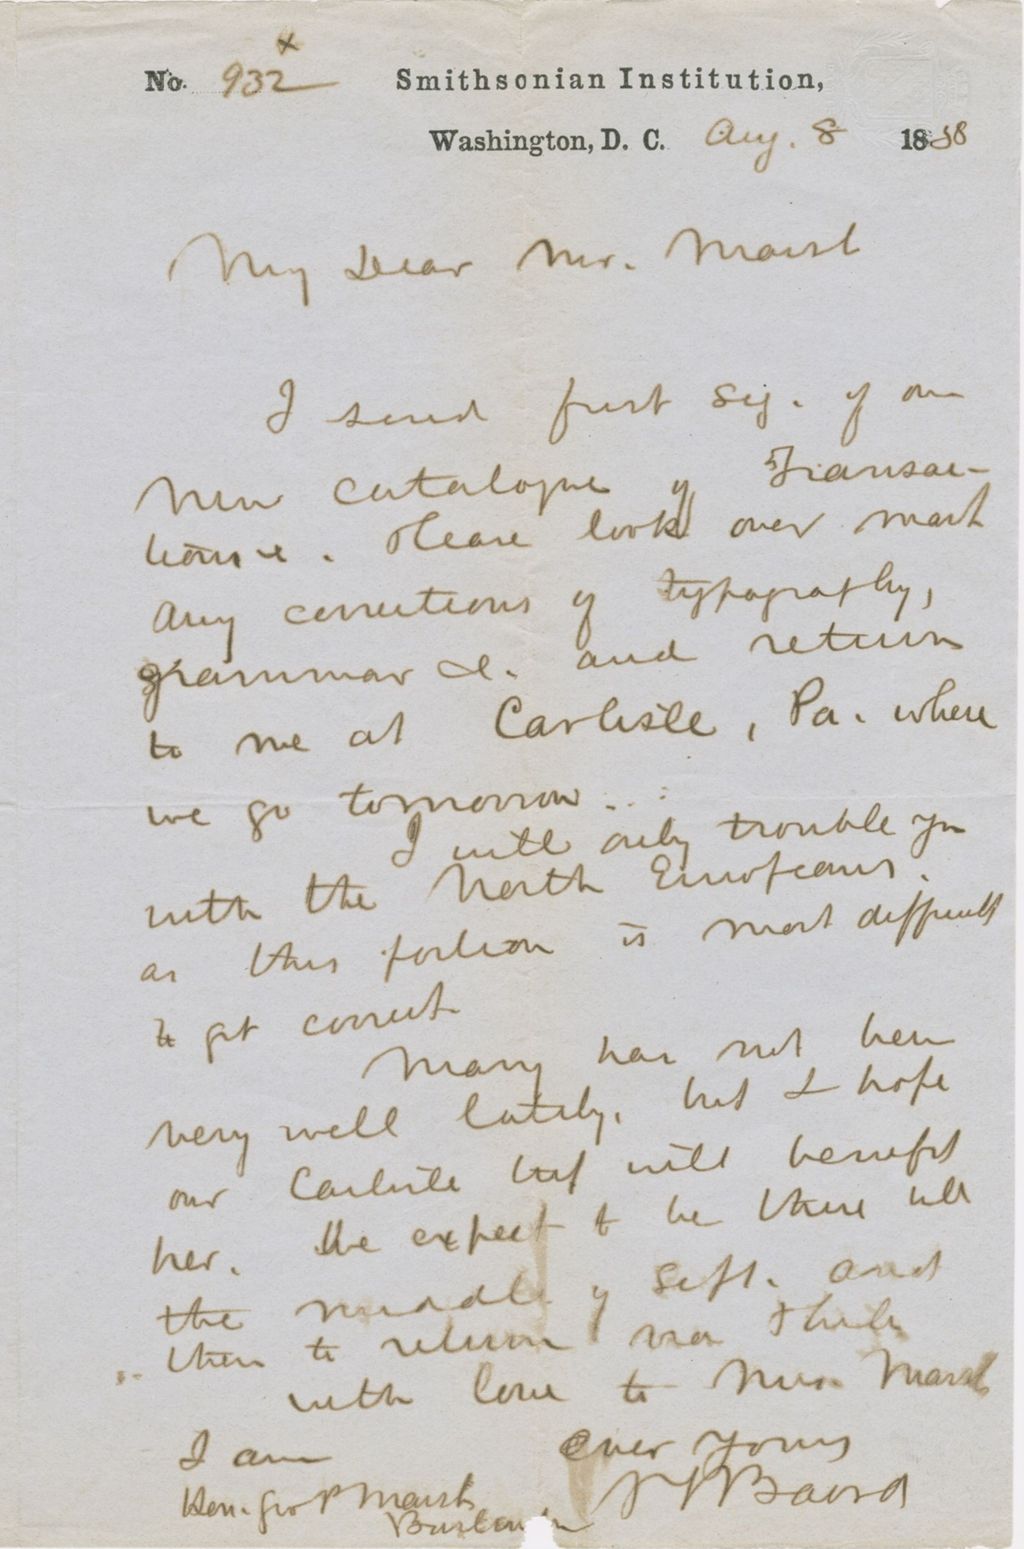 No. 932 x Smithsonian Institution,
Washington, D. C. Aug. 8 1858
My Dear Mr. Marsh
I send first sig. of our
new catalogue of Transac-
tions &c. Please look over mark
any corrections of typography,
grammar &c. and return
to me at Carlisle, Pa. where
we go tomorrow.
I will only trouble you
with the North Europeans.
as this portion is most difficult
to get correct
Mary has not been
very well lately, but I hope
our Carlisle will benefit
her. We expect to be there till
the middle of Sept. and
then to return via Phila
with love to Mrs. Marsh
I am ever yours
Hon. Geo P Marsh S F Baird
Burlington